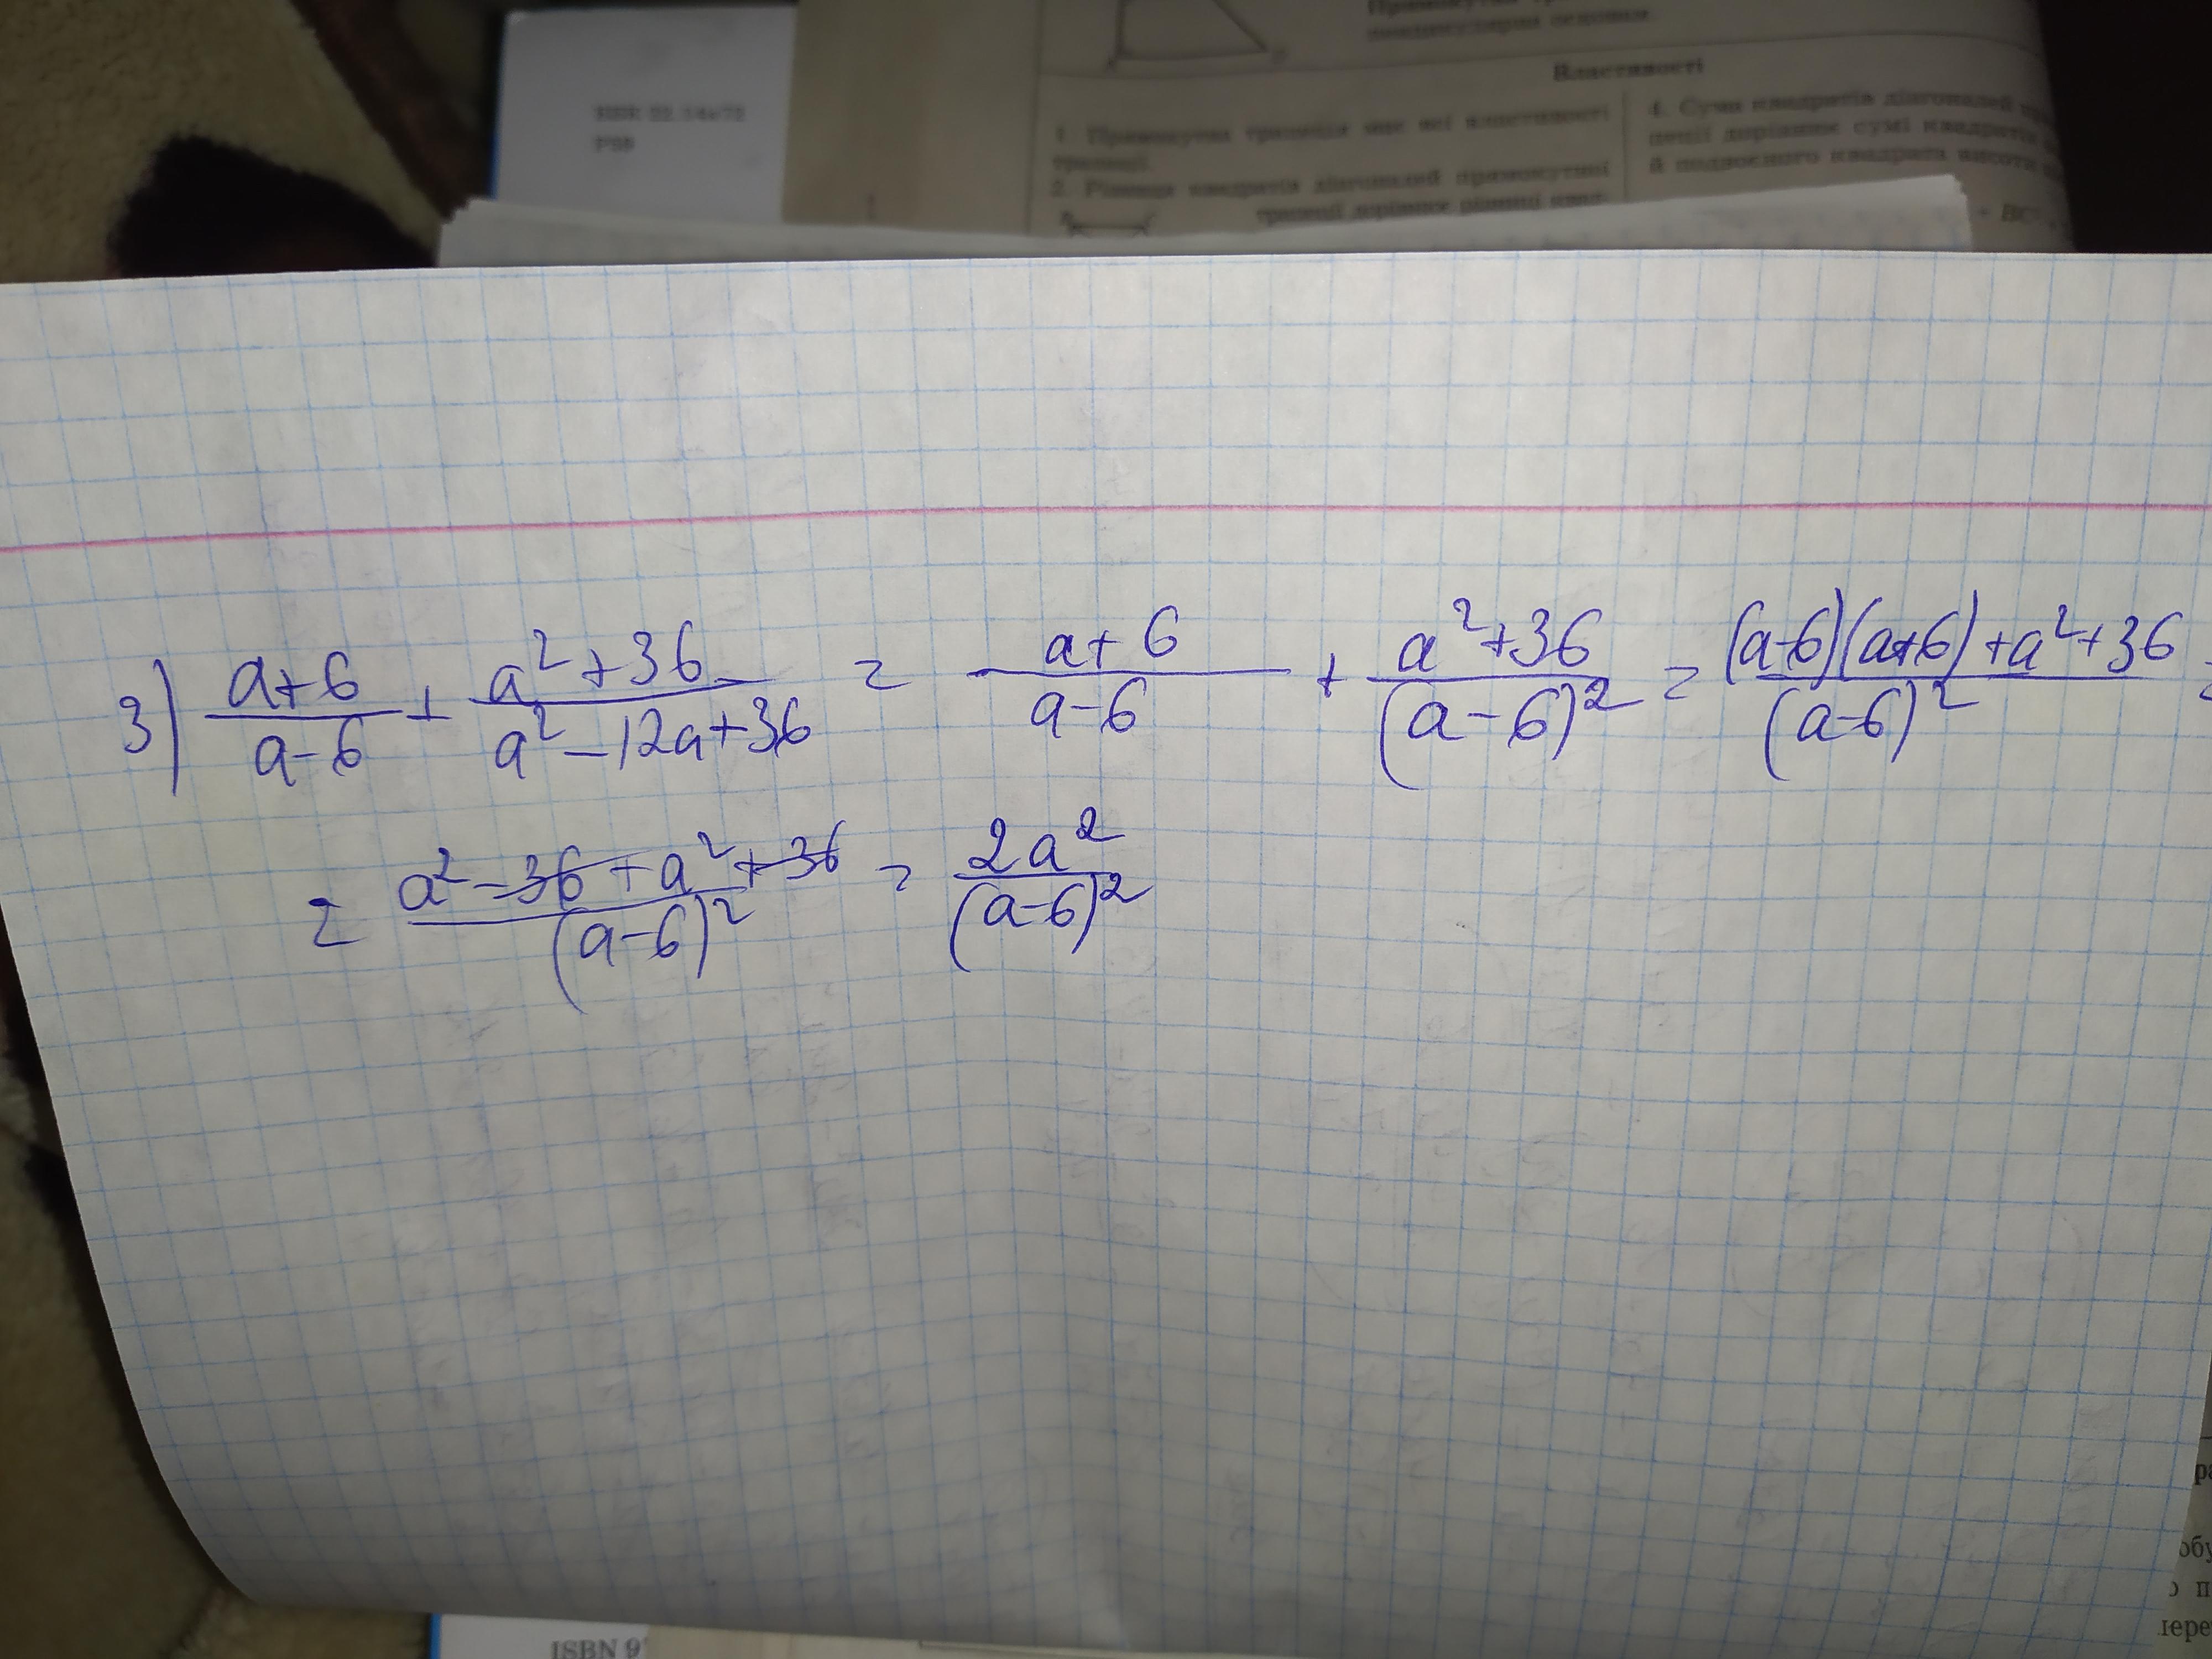 Властивості
1. Прямокутна трапеція має всі властивості
трапеції.
4. Сума квадратів діагоналей
пеції дорівнює сумі квадратів
й подвоєного квадрата висоти
2. Різниця квадратів діагоналей прямокутної
трапеції дорівнює різниці
3) \frac{a+6}{a-6} + \frac{a^2+36}{a^2-12a+36} = \frac{a+6}{a-6} + \frac{a^2+36}{(a-6)^2} = \frac{(a-6)(a+6)+a^2+36}{(a-6)^2} =
= \frac{a^2-36+a^2+36}{(a-6)^2} = \frac{2a^2}{(a-6)^2}
ISBN 9